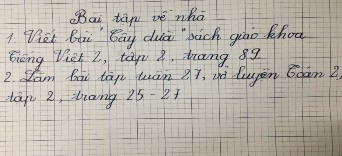 Bài tập về nhà
1. Viết bài "Cây dừa" sách giáo khoa
Tiếng Việt 2, tập 2, trang 89.
2. Làm bài tập tuần 27, vở luyện Toán 2,
tập 2, trang 25 - 27